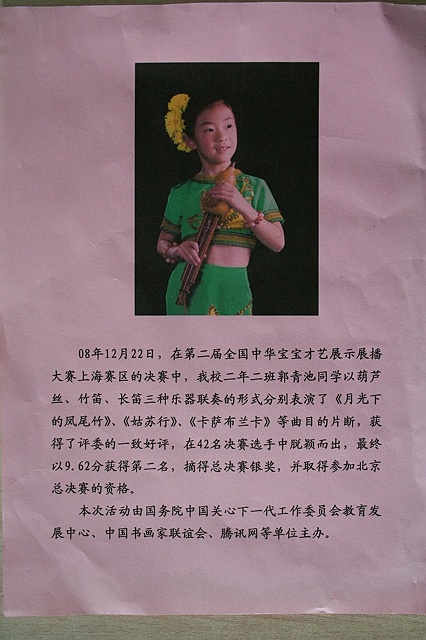 08年12月22日，在第二届全国中华宝宝才艺展示展播
大赛上海赛区的决赛中，我校二年二班郭青池同学以葫芦
丝、竹笛、长笛三种乐器联奏的形式分别表演了《月光下
的凤尾竹》、《姑苏行》、《卡萨布兰卡》等曲目的片断，获
得了评委的一致好评，在42名决赛选手中脱颖而出，最终
以9.62分获得第二名，摘得总决赛银奖，并取得参加北京
总决赛的资格。
本次活动由国务院中国关心下一代工作委员会教育发
展中心、中国书画家联谊会、腾讯网等单位主办。